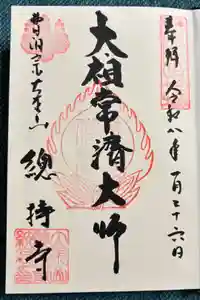 奉拝 令和八年一月二十六日
太祖常濟大師
曹洞宗大本山
總持寺